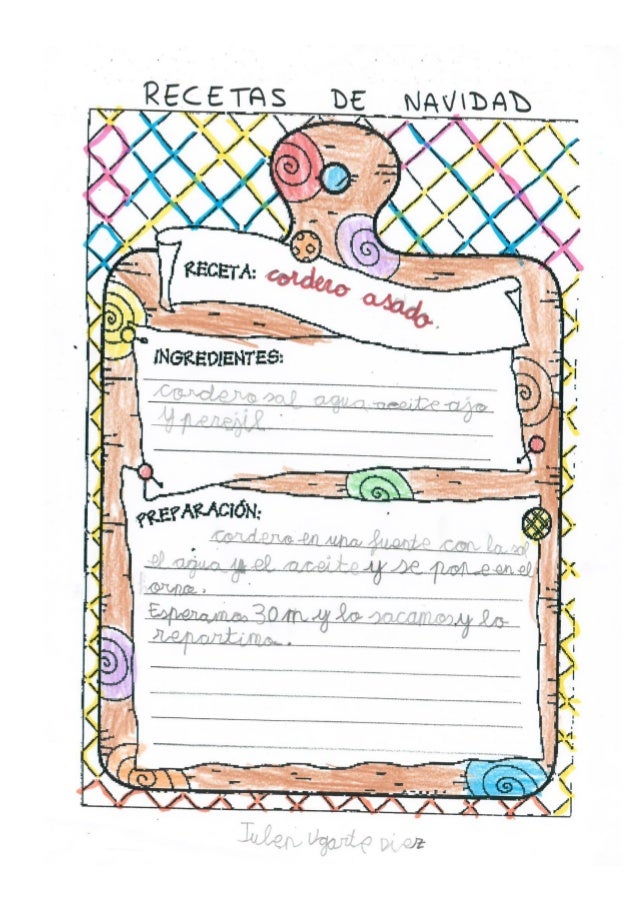 RECETAS DE NAVIDAD
RECETA: cordero asado.
INGREDIENTES:
cordero sal agua aceite ajo
y perejil
PREPARACIÓN:
cordero en una fuente con la sal
el agua y el aceite y se pone en el
horno.
Esperamos 30 m y lo sacamos y lo
repartimo.
Julen Ugarte Diez